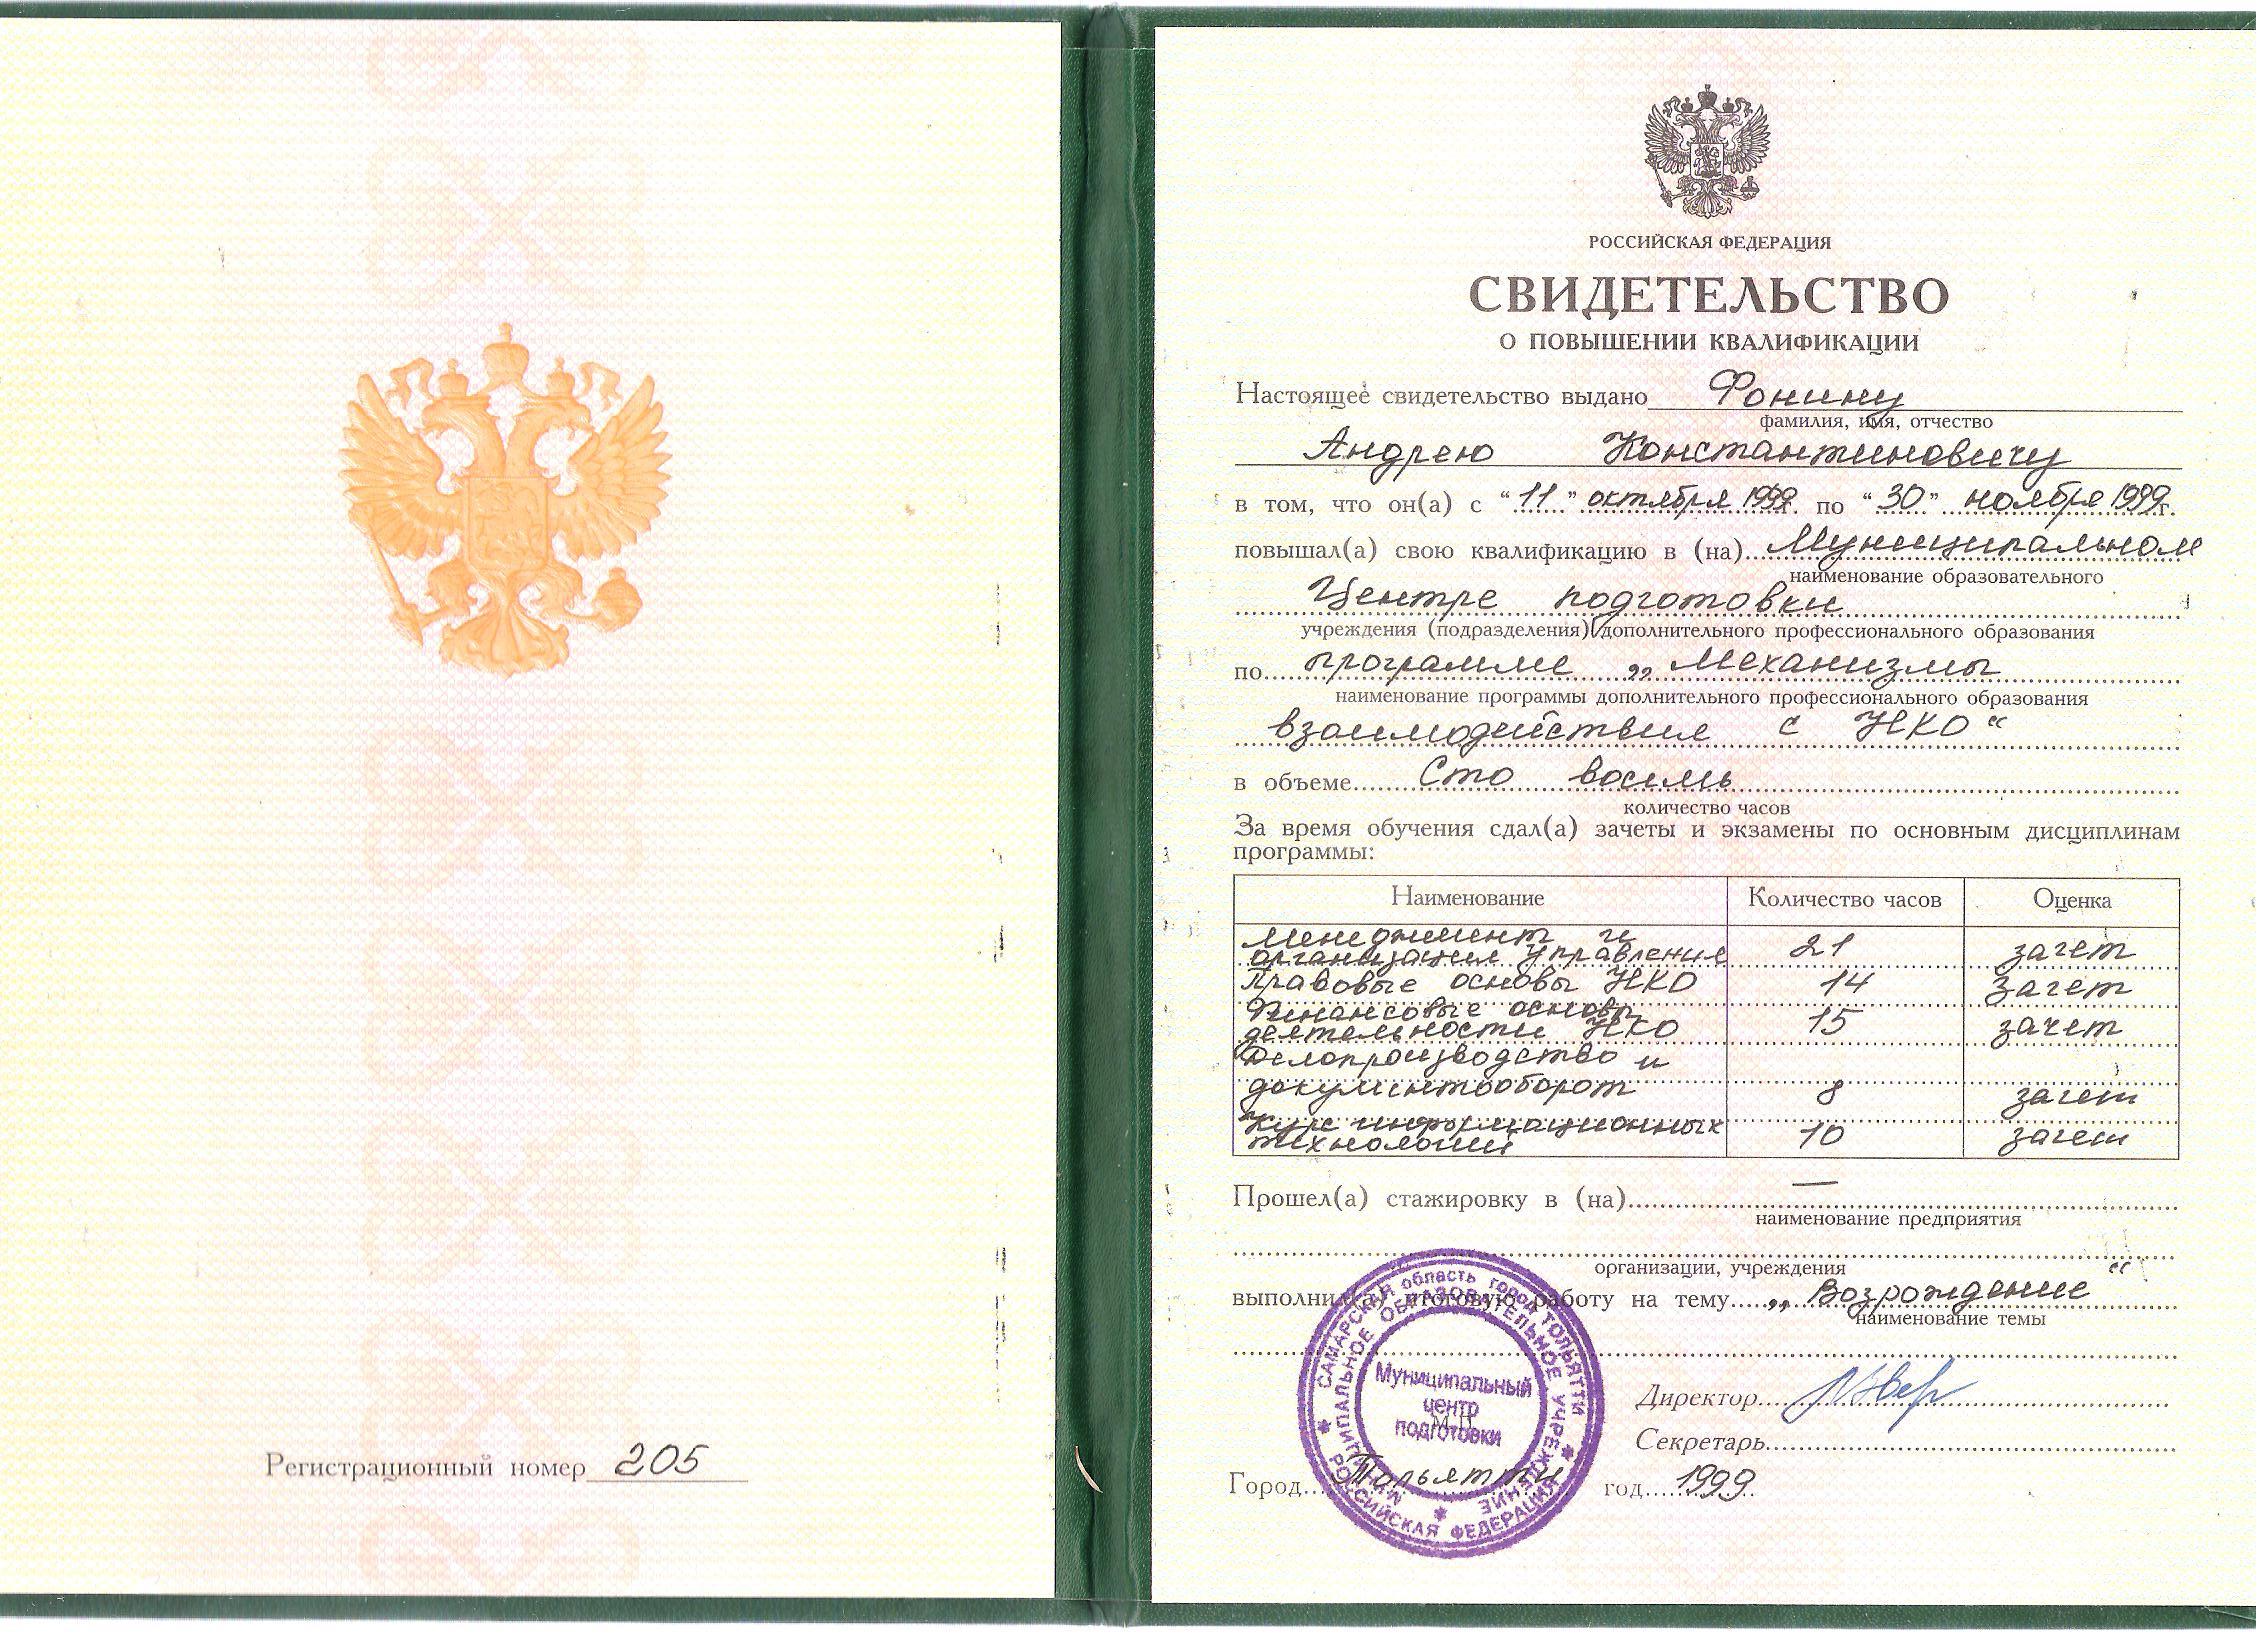 Регистрационный номер 205
РОССИЙСКАЯ ФЕДЕРАЦИЯ
СВИДЕТЕЛЬСТВО
О ПОВЫШЕНИИ КВАЛИФИКАЦИИ
Настоящее свидетельство выдано Фонину
фамилия, имя, отчество
Андрею Константиновичу
в том, что он(а) с "11" октября 1999г. по "30" ноября 1999г.
повышал(а) свою квалификацию в (на) Муниципальном
наименование образовательного
Центре подготовки
учреждения (подразделения) дополнительного профессионального образования
по программе „Механизмы
наименование программы дополнительного профессионального образования
взаимодействия с НКО“
в объеме Сто восемь
количество часов
За время обучения сдал(а) зачеты и экзамены по основным дисциплинам
программы:
Наименование Количество часов Оценка
Менеджмент и
организация управления 21 зачет
Правовые основы НКО 14 Зачет
Финансовые основы
деятельности НКО 15 зачет
Делопроизводство и
документооборот 8 зачет
Курс информационных
технологий 10 зачет
Прошел(а) стажировку в (на) —
наименование предприятия
организации, учреждения
выполнил(а) итоговую работу на тему „Возрождение“
наименование темы
Директор
Секретарь
М.П.
Город Тольятти год 1999
САМАРСКАЯ область город ТОЛЬЯТТИ
РОССИЙСКАЯ ФЕДЕРАЦИЯ
МУНИЦИПАЛЬНОЕ ОБРАЗОВАТЕЛЬНОЕ УЧРЕЖДЕНИЕ
Муниципальный
центр
подготовки